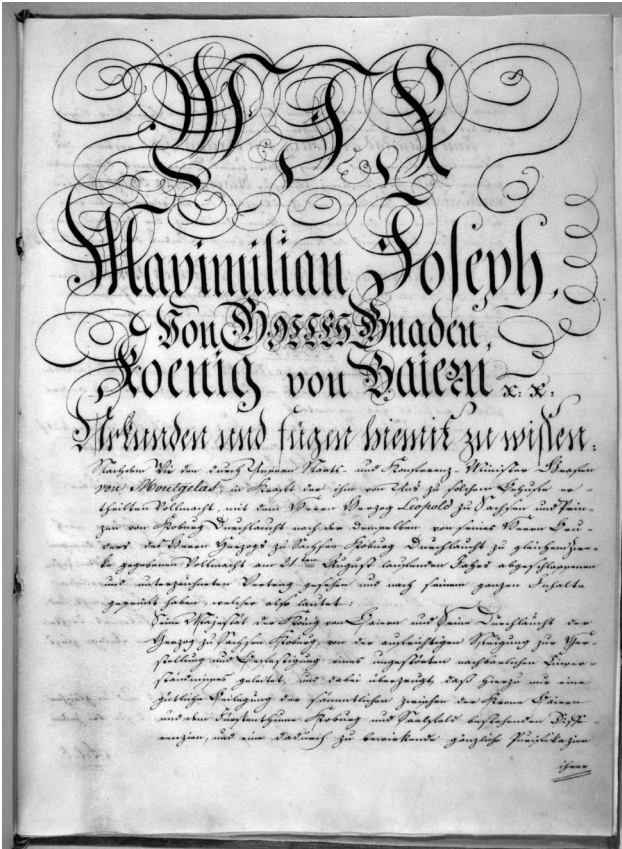 WIR
Maximilian Joseph,
Von GOTTES Gnaden,
Koenig von Baiern &: &:
Urkunden und fügen hiemit zu wissen:
Nachdem Wir den durch Unseren Staats- und Konferenz-Minister Grafen
von Montgelas, in Kraft der ihm von Uns zu solchem Behufe er-
theilten Vollmacht, mit dem Herrn Herzog Leopold zu Sachsen und Prin-
zen von Koburg Durchlaucht nach der demselben von seines Herrn Bru-
ders des Herrn Herzogs zu Sachsen Koburg Durchlaucht zu gleichem Zwe-
ke gegebenen Vollmacht am 21ten August laufenden Jahrs abgeschlossenen
und unterzeichneten Vertrag gesehen und nach seinem ganzen Inhalte
geprüft haben, welcher also lautet:
Seine Majestät der König von Baiern und Seine Durchlaucht der
Herzog zu Sachsen Koburg, von der aufrichtigen Neigung zur Her-
stellung und Befestigung eines ungestörten nachbarlichen Einver-
ständnisses geleitet, und dabei überzeugt, daß hierzu nur eine
gütliche Beilegung der sämmtlichen zwischen der Krone Baiern
und dem Fürstenthume Koburg und Saalfeld bestehenden Diffe-
renzien, und eine dadurch zu bewirkende gänzliche Purifikazion
ihrer